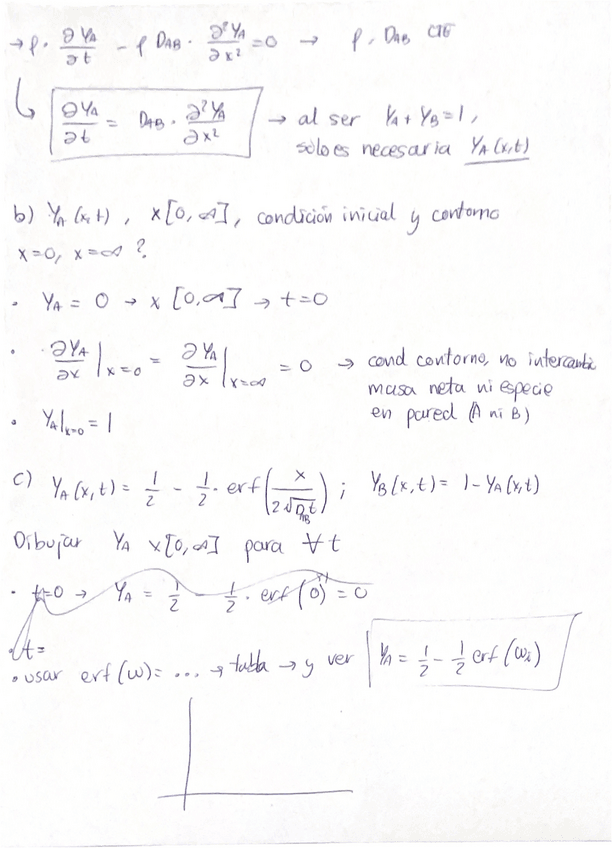 → ρ · ∂YA/∂t - ρ DAB · ∂²YA/∂x² = 0 → ρ, DAB CTE
∂YA/∂t = DAB · ∂²YA/∂x² → al ser YA + YB = 1,
sólo es necesaria YA(x,t)
b) YA (x,t), x[0,∞], condición inicial y contorno
x=0, x=∞ ?
• YA = 0 → x [0,∞] → t=0
• ∂YA/∂x |x=0 = ∂YA/∂x |x=∞ = 0 → cond contorno, no intercambia
masa neta ni especie
en pared (A ni B)
• YA|x=0 = 1
c) YA(x,t) = 1/2 - 1/2 · erf(x/2√DABt) ; YB(x,t) = 1-YA(x,t)
Dibujar YA x[0,∞] para ∀t
• t=0 → YA = 1/2 - 1/2 · erf(0) = 0
• t=
• usar erf(w)= ... → tabla → y ver YA = 1/2 - 1/2 erf(wi)